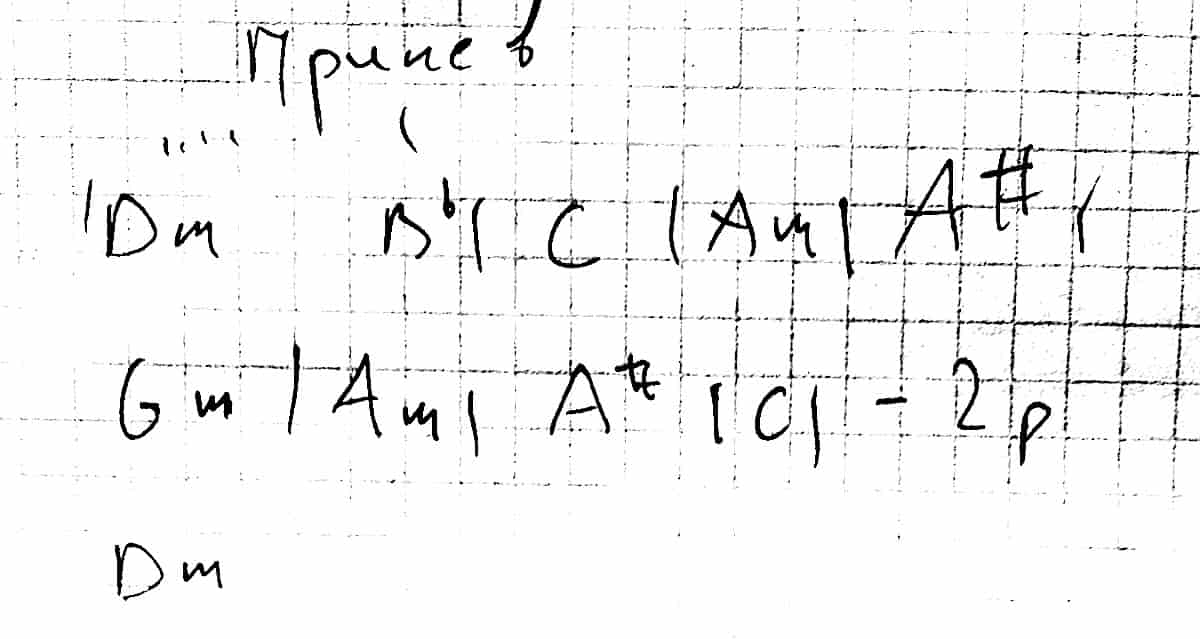 Припев
|Dm B♭| C | Am | A# |
Gm | Am | A# | C | - 2р
Dm